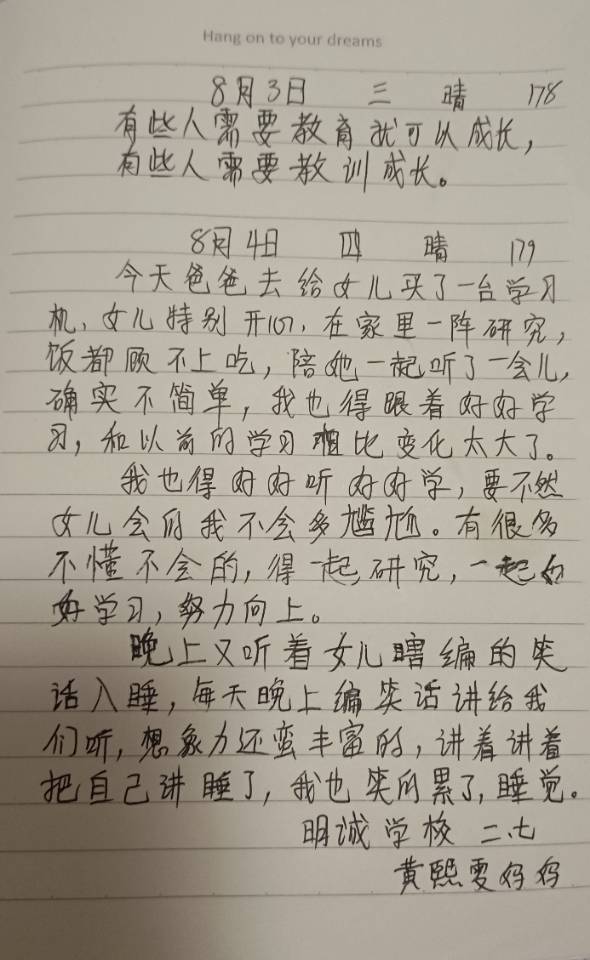 Hang on to your dreams
8月3日 三 晴 178
有些人需要教育就可以成长,
有些人需要教训成长。
8月4日 四 晴 179
今天爸爸去给女儿买了一台学习
机、女儿特别开心,在家里一阵研究,
饭都顾不上吃,陪她一起听了一会儿,
确实不简单,我也得跟着好好学
习,和以前的学习相比变化太大了。
我也得好好听好好学,要不然
女儿会的我不会多尴尬。有很多
不懂不会的,得一起研究,一起好
好学习,努力向上。
晚上又听着女儿瞎编的笑
话入睡,每天晚上编笑话讲给我
们听,想象力还蛮丰富的,讲着讲着
把自己讲睡了,我也笑的累了,睡觉。
明诚学校 二.七
黄熙雯妈妈